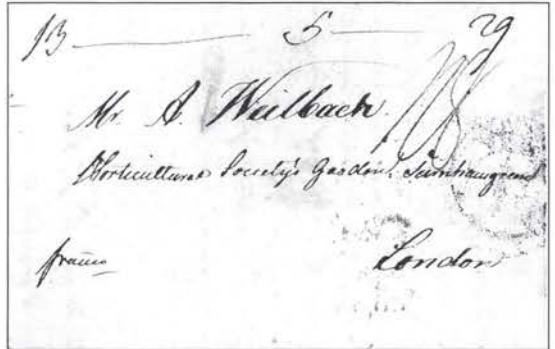 13 — 5 — 29
Mr. A. Weilbach.
Horticultural Society's Garden. Turnhamgreen
franco
London